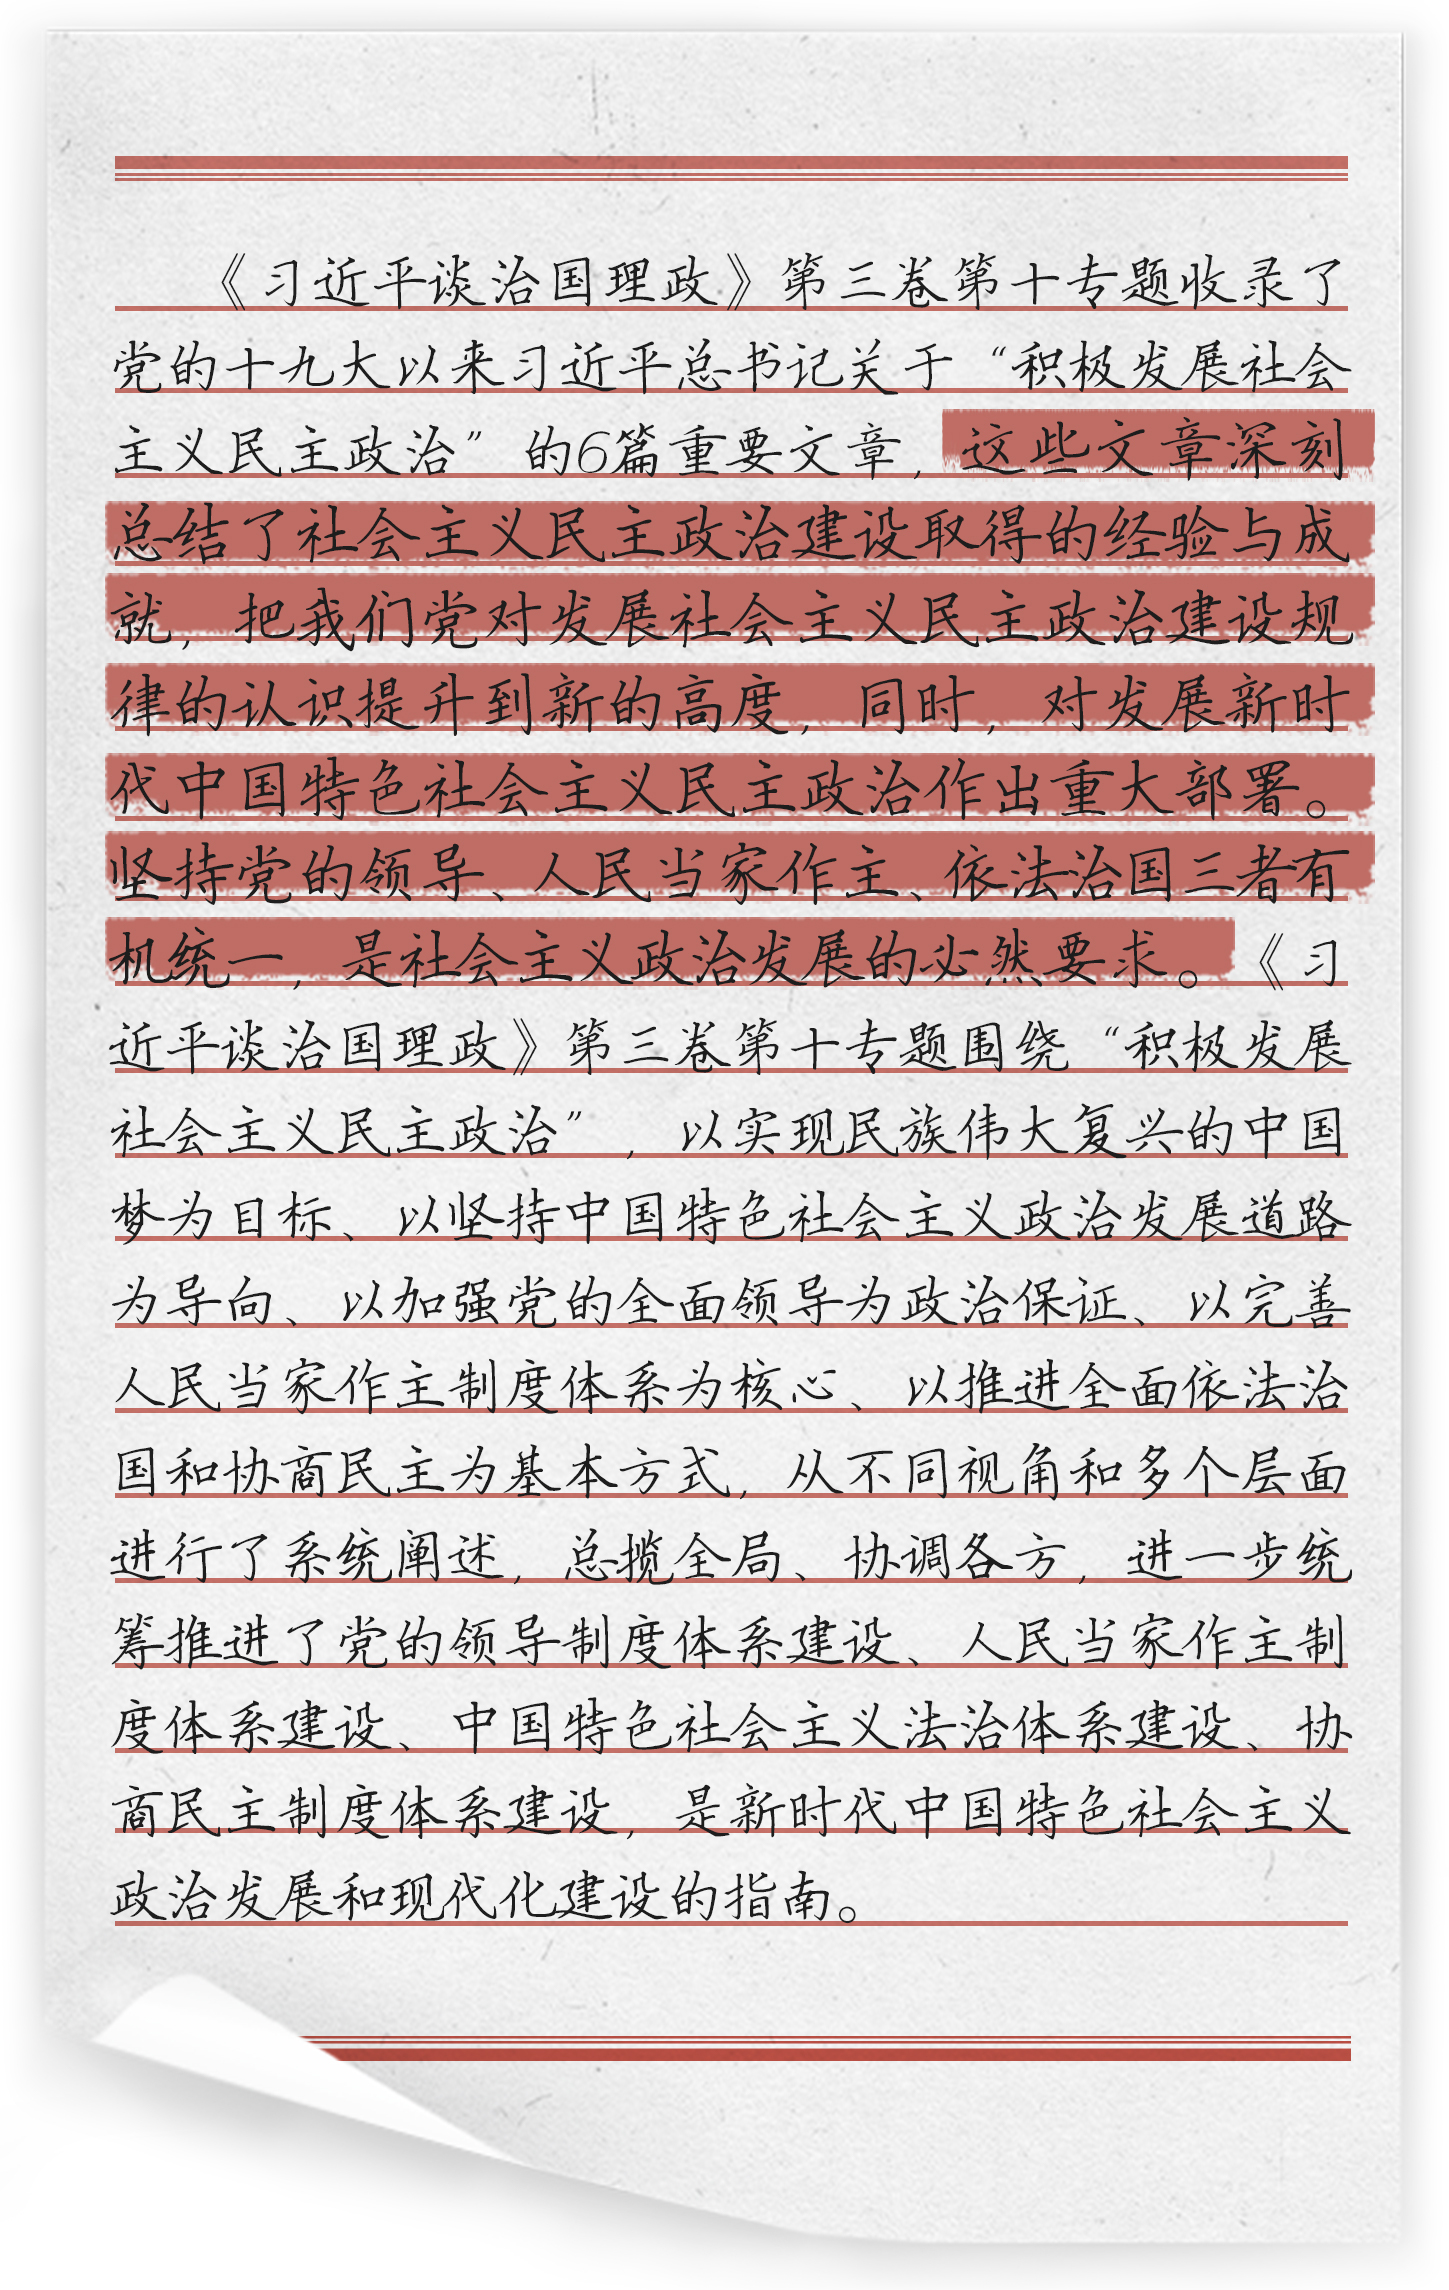 《习近平谈治国理政》第三卷第十专题收录了
党的十九大以来习近平总书记关于“积极发展社会
主义民主政治”的6篇重要文章，这些文章深刻
总结了社会主义民主政治建设取得的经验与成
就，把我们党对发展社会主义民主政治建设规
律的认识提升到新的高度，同时，对发展新时
代中国特色社会主义民主政治作出重大部署。
坚持党的领导、人民当家作主、依法治国三者有
机统一，是社会主义政治发展的必然要求。《习
近平谈治国理政》第三卷第十专题围绕“积极发展
社会主义民主政治”，以实现民族伟大复兴的中国
梦为目标、以坚持中国特色社会主义政治发展道路
为导向、以加强党的全面领导为政治保证、以完善
人民当家作主制度体系为核心、以推进全面依法治
国和协商民主为基本方式，从不同视角和多个层面
进行了系统阐述，总揽全局、协调各方，进一步统
筹推进了党的领导制度体系建设、人民当家作主制
度体系建设、中国特色社会主义法治体系建设、协
商民主制度体系建设，是新时代中国特色社会主义
政治发展和现代化建设的指南。